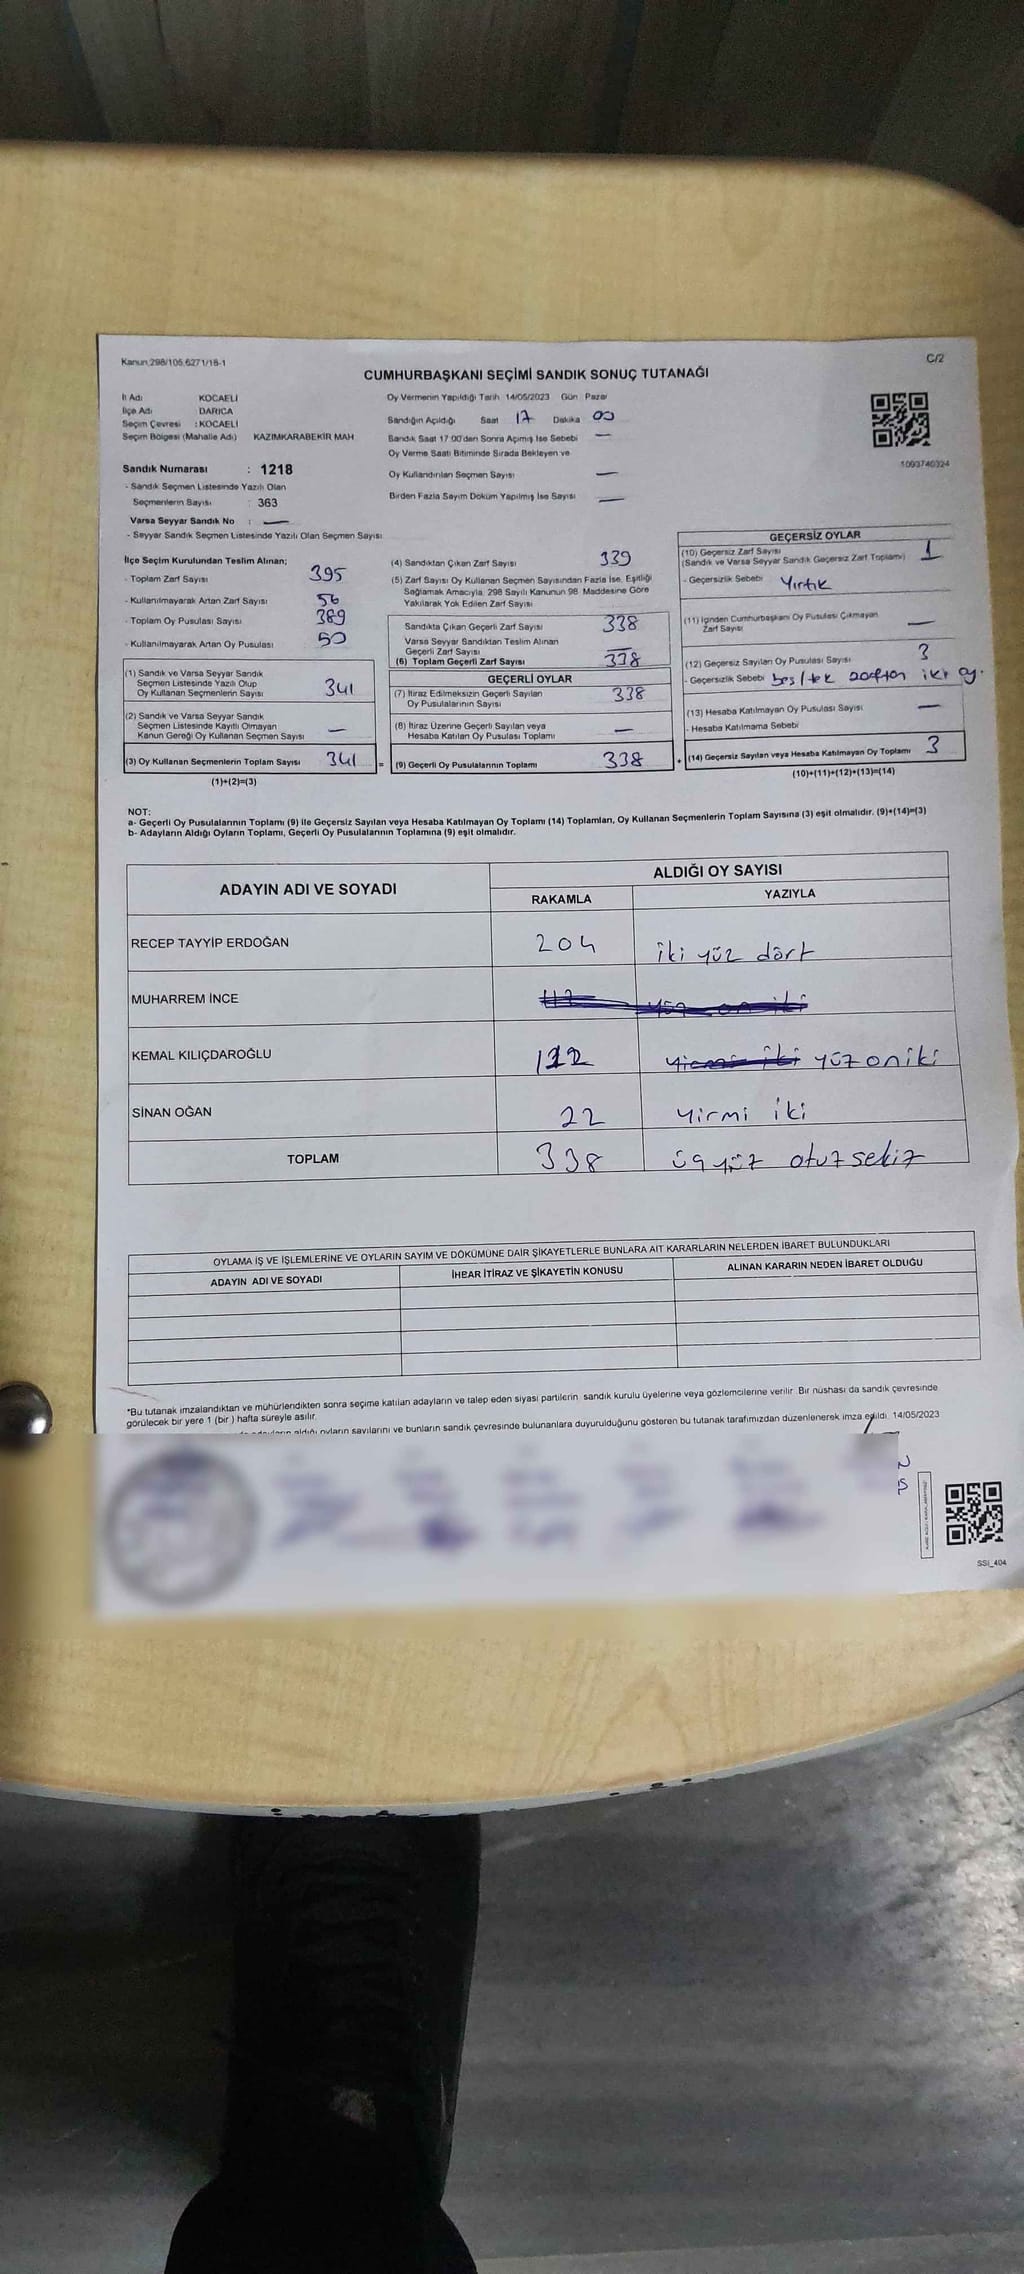 Kanun.298/105,6271/18-1
C/2
CUMHURBAŞKANI SEÇİMİ SANDIK SONUÇ TUTANAĞI
İl Adı KOCAELİ
İlçe Adı DARICA
Seçim Çevresi : KOCAELİ
Seçim Bölgesi (Mahalle Adı) KAZIMKARABEKİR MAH
Sandık Numarası : 1218
- Sandık Seçmen Listesinde Yazılı Olan
Seçmenlerin Sayısı : 363
Varsa Seyyar Sandık No : —
- Seyyar Sandık Seçmen Listesinde Yazılı Olan Seçmen Sayısı
Oy Vermenin Yapıldığı Tarih 14/05/2023 Gün Pazar
Sandığın Açıldığı Saat 17 Dakika 00
Sandık Saat 17:00'den Sonra Açımış İse Sebebi —
Oy Verme Saati Bitiminde Sırada Bekleyen ve
Oy Kullandırılan Seçmen Sayısı —
Birden Fazla Sayım Döküm Yapılmış İse Sayısı —
1093740324
İlçe Seçim Kurulundan Teslim Alınan;
- Toplam Zarf Sayısı 395
- Kullanılmayarak Artan Zarf Sayısı 56
- Toplam Oy Pusulası Sayısı 389
- Kullanılmayarak Artan Oy Pusulası 50
(1) Sandık ve Varsa Seyyar Sandık
Seçmen Listesinde Yazılı Olup
Oy Kullanan Seçmenlerin Sayısı 341
(2) Sandık ve Varsa Seyyar Sandık
Seçmen Listesinde Kayıtlı Olmayan
Kanun Gereği Oy Kullanan Seçmen Sayısı —
(3) Oy Kullanan Seçmenlerin Toplam Sayısı 341 =
(1)+(2)=(3)
(4) Sandıktan Çıkan Zarf Sayısı 339
(5) Zarf Sayısı Oy Kullanan Seçmen Sayısından Fazla İse, Eşitliği
Sağlamak Amacıyla, 298 Sayılı Kanunun 98. Maddesine Göre
Yakılarak Yok Edilen Zarf Sayısı
Sandıkta Çıkan Geçerli Zarf Sayısı 338
Varsa Seyyar Sandıktan Teslim Alınan
Geçerli Zarf Sayısı —
(6) Toplam Geçerli Zarf Sayısı 338
GEÇERLİ OYLAR
(7) İtiraz Edilmeksizin Geçerli Sayılan
Oy Pusulalarının Sayısı 338
(8) İtiraz Üzerine Geçerli Sayılan veya
Hesaba Katılan Oy Pusulası Toplamı —
(9) Geçerli Oy Pusulalarının Toplamı 338 +
GEÇERSİZ OYLAR
(10) Geçersiz Zarf Sayısı
(Sandık ve Varsa Seyyar Sandık Geçersiz Zarf Toplamı) 1
- Geçersizlik Sebebi Yırtık
(11) İçinden Cumhurbaşkanı Oy Pusulası Çıkmayan
Zarf Sayısı —
(12) Geçersiz Sayılan Oy Pusulası Sayısı 3
- Geçersizlik Sebebi boş/tek zarftan iki oy.
(13) Hesaba Katılmayan Oy Pusulası Sayısı —
- Hesaba Katılmama Sebebi
(14) Geçersiz Sayılan veya Hesaba Katılmayan Oy Toplamı 3
(10)+(11)+(12)+(13)=(14)
NOT:
a- Geçerli Oy Pusulalarının Toplamı (9) ile Geçersiz Sayılan veya Hesaba Katılmayan Oy Toplamı (14) Toplamları, Oy Kullanan Seçmenlerin Toplam Sayısına (3) eşit olmalıdır. (9)+(14)=(3)
b- Adayların Aldığı Oyların Toplamı, Geçerli Oy Pusulalarının Toplamına (9) eşit olmalıdır.
ADAYIN ADI VE SOYADI ALDIĞI OY SAYISI
RAKAMLA YAZIYLA
RECEP TAYYİP ERDOĞAN 204 iki yüz dört
MUHARREM İNCE 112 yüz on iki
KEMAL KILIÇDAROĞLU 112 yirmi iki yüz oniki
SİNAN OĞAN 22 yirmi iki
TOPLAM 338 üç yüz otuz sekiz
OYLAMA İŞ VE İŞLEMLERİNE VE OYLARIN SAYIM VE DÖKÜMÜNE DAİR ŞİKAYETLERLE BUNLARA AİT KARARLARIN NELERDEN İBARET BULUNDUKLARI
ADAYIN ADI VE SOYADI İHBAR İTİRAZ VE ŞİKAYETİN KONUSU ALINAN KARARIN NEDEN İBARET OLDUĞU
*Bu tutanak imzalandıktan ve mühürlendikten sonra seçime katılan adayların ve talep eden siyasi partilerin sandık kurulu üyelerine veya gözlemcilerine verilir. Bir nüshası da sandık çevresinde
görülecek bir yere 1 (bir) hafta süreyle asılır.
aldığı oyların sayılarını ve bunların sandık çevresinde bulunanlara duyurulduğunu gösteren bu tutanak tarafımızdan düzenlenerek imza edildi. 14/05/2023
SSI_404